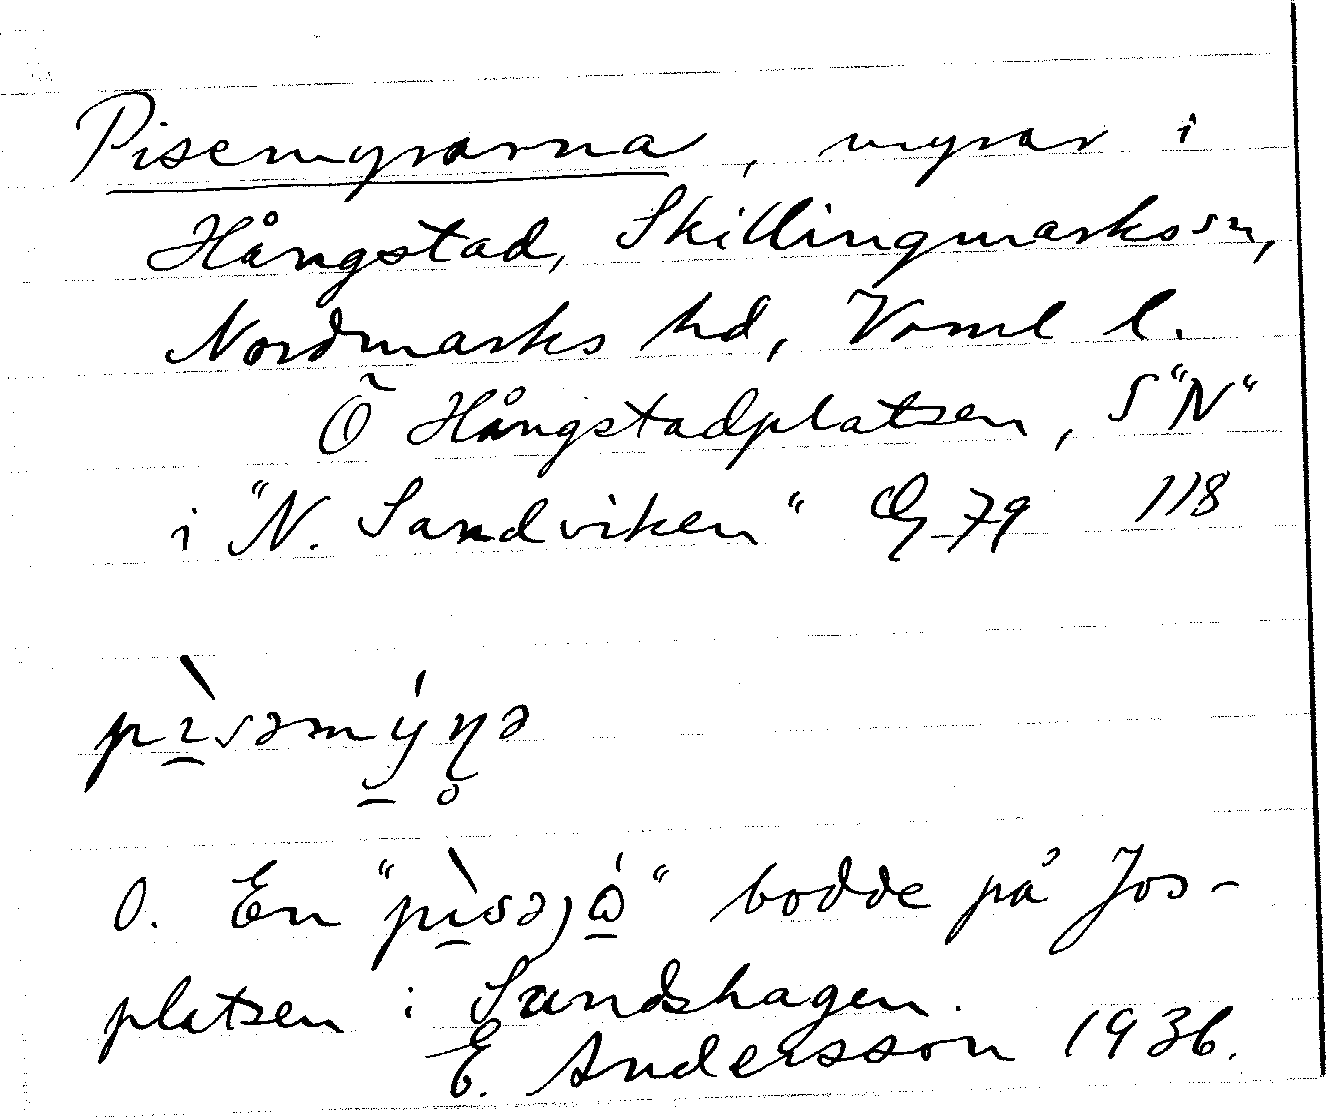 Pisemyrarna, myrar i
Hångstad, Skillingmarks sn,
Nordmarks hd, Värml l.
Ö Hångstadplatsen, S "N"
i "N. Sandviken" G 79 118
pìsəmýn̥ə
O. En "pìsəjó" bodde på Jos-
platsen i Sandshagen.
E. Andersson 1936.